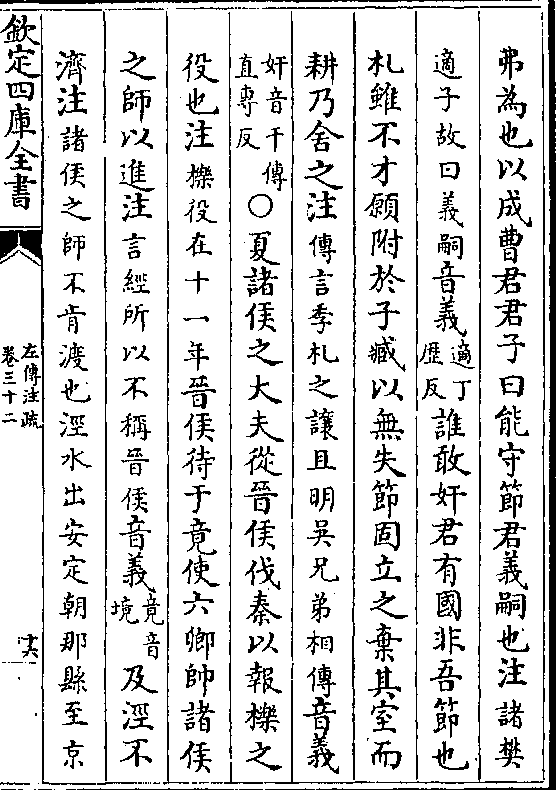 弗為也以成曹君君子曰能守節君義嗣也注諸樊
適子故曰義嗣音義適丁歴反誰敢奸君有國非吾節也
札雖不才願附於子臧以無失節固立之棄其室而
耕乃舍之注傳言季札之讓且明吳兄弟相傳音義
奸音干傳直專反○夏諸侯之大夫從晉侯伐秦以報櫟之
役也注櫟役在十一年晉侯待于竟使六卿帥諸侯
之師以進注言經所以不稱晉侯音義竟音境及涇不
濟注諸侯之師不肯渡也涇水出安定朝那縣至京
欽定四庫全書
左傳注疏
卷三十二
十六